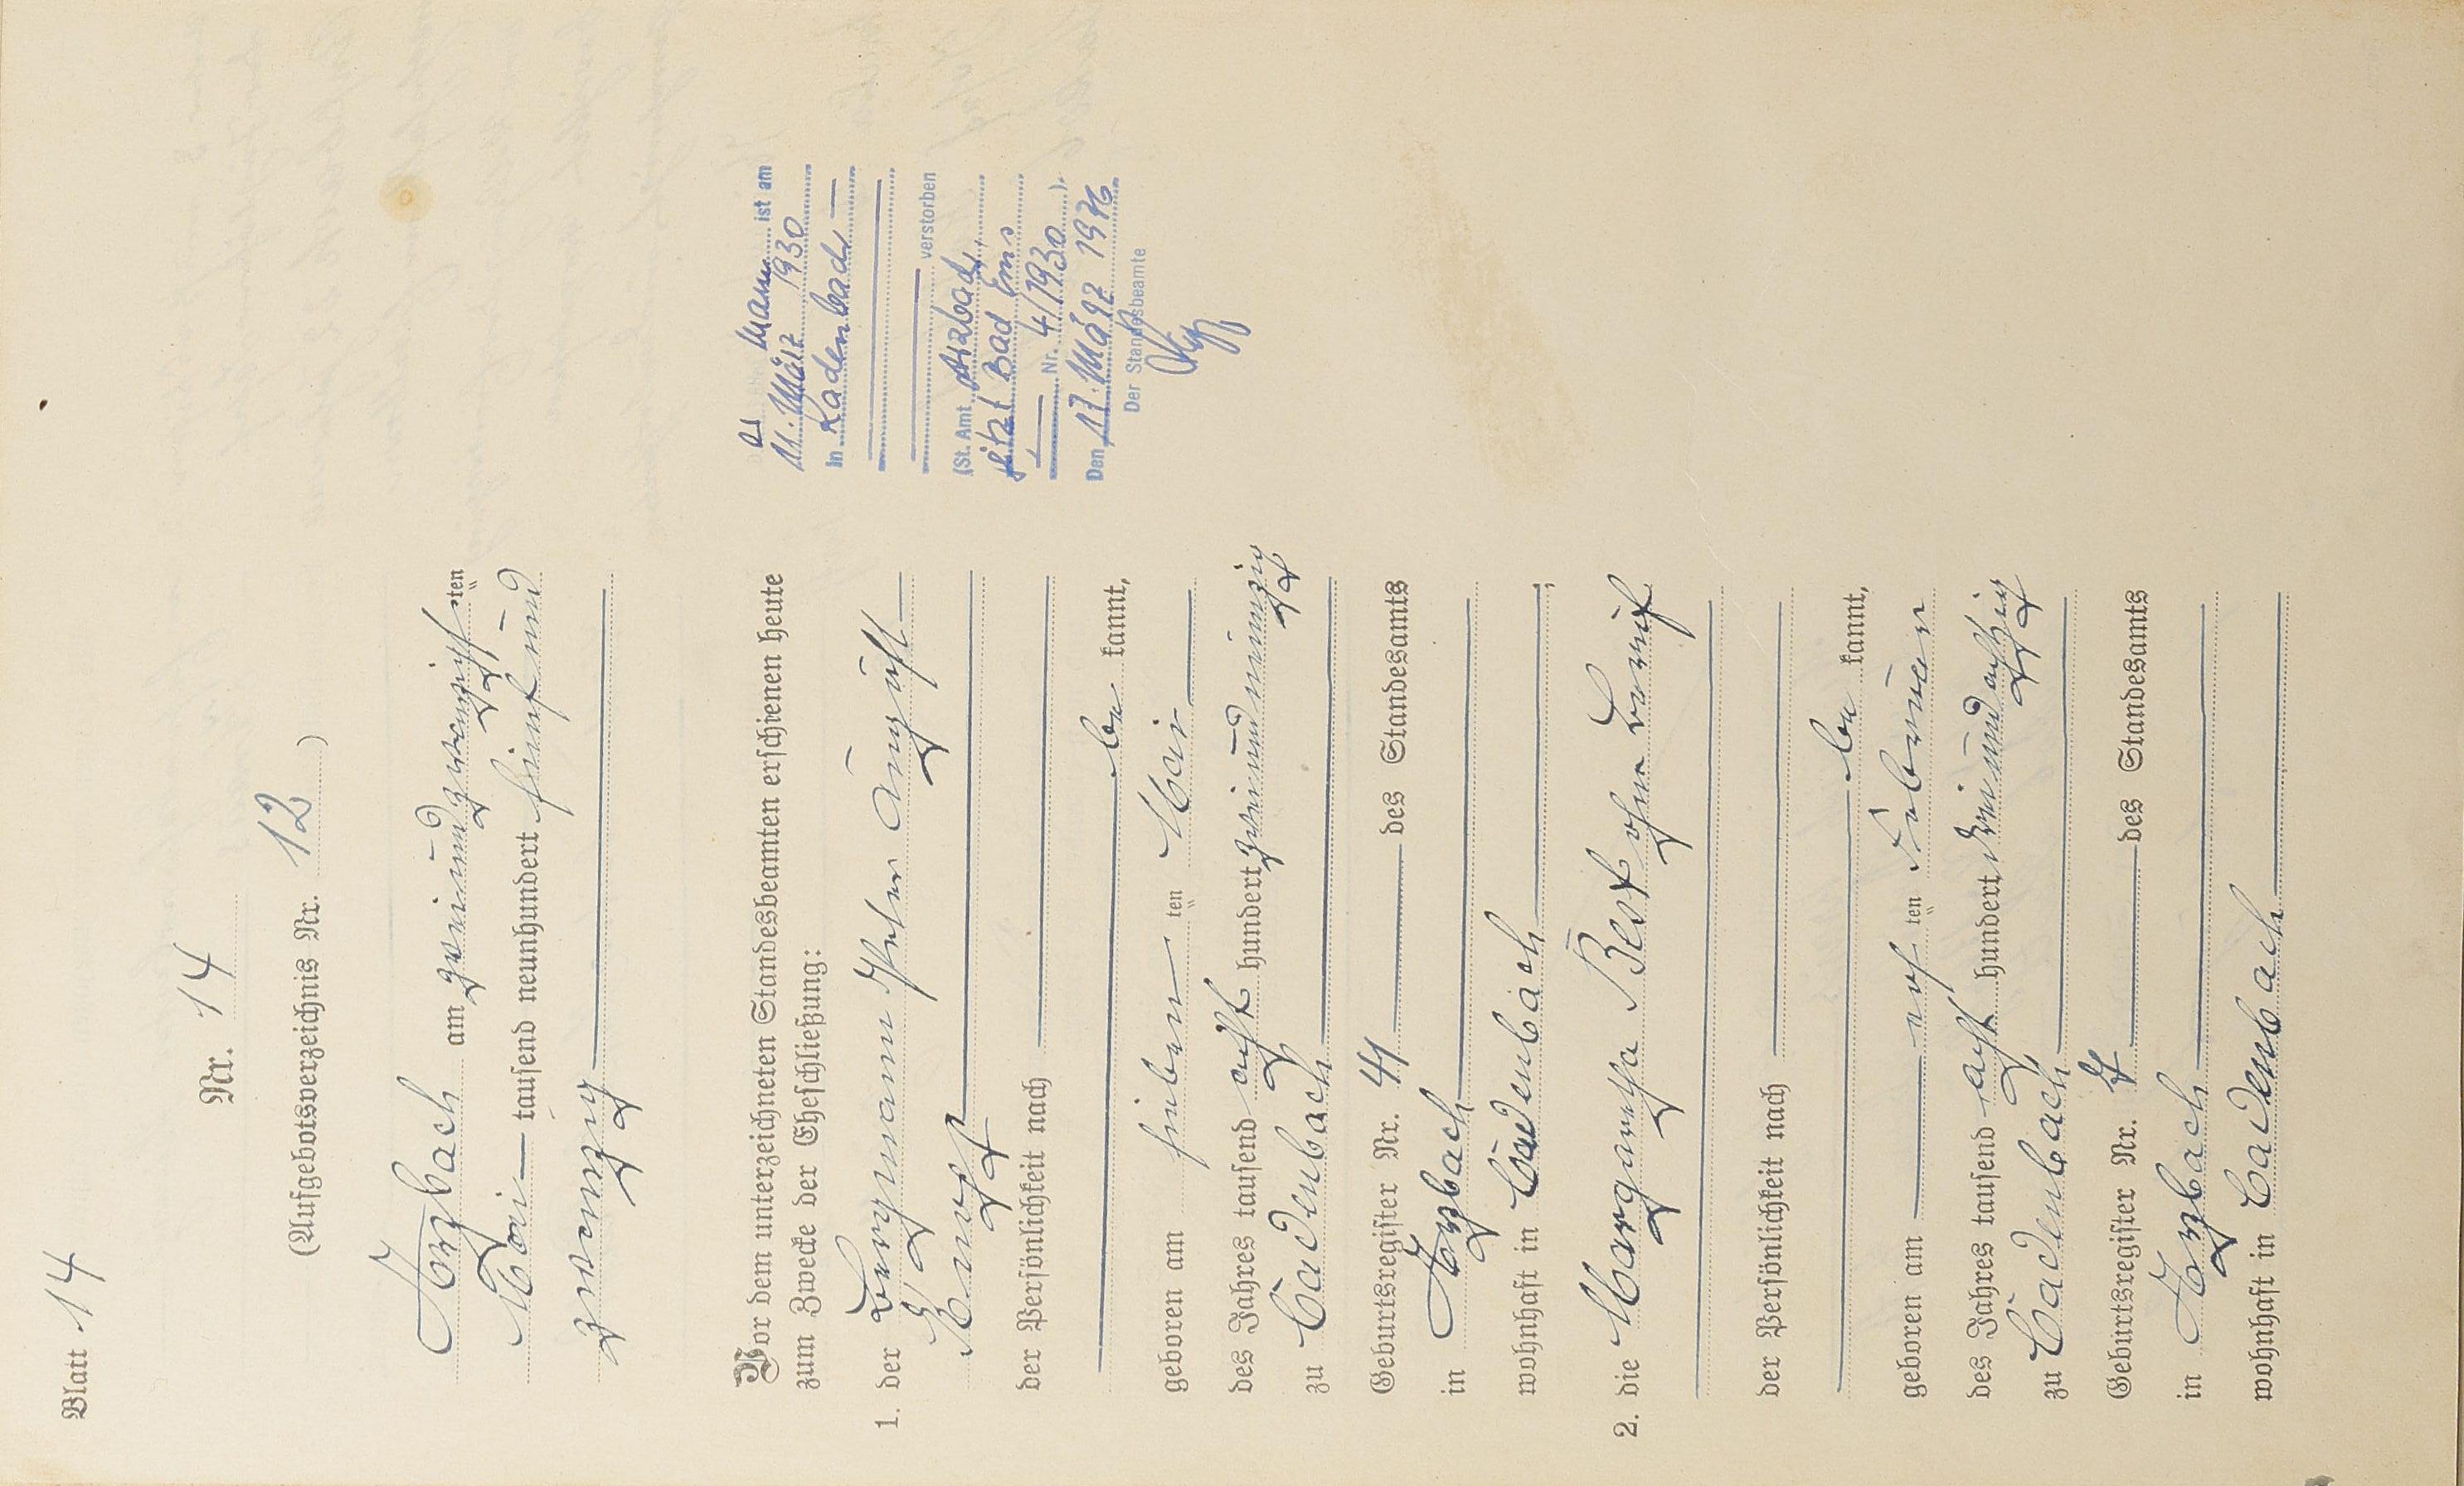 Blatt 14
Nr. 14
(Aufgebotsverzeichnis Nr. 12)
Arzbach am zweiundzwanzigsten
Mai tausend neunhundert fünfund
zwanzig
Vor dem unterzeichneten Standesbeamten erschienen heute
zum Zwecke der Eheschließung:
1. der Bergmann Peter August
Knopf
der Persönlichkeit nach
be kannt,
geboren am sieben ten Mai
des Jahres tausend acht hundert zweiundneunzig
zu Cadenbach
Geburtsregister Nr. des Standesamts
in Arzbach
wohnhaft in Cadenbach
2. die Margaretha Best ohne Beruf
der Persönlichkeit nach
be kannt,
geboren am ten Februar
des Jahres tausend acht hundert dreiundachtzig
zu Cadenbach
Geburtsregister Nr. des Standesamts
in Arzbach
wohnhaft in Cadenbach
Der Mann ist am
11. März 1930
in Kadenbach
verstorben
(St. Amt Arzbach,
jetzt Bad Ems
Nr. 4/1930).
Den 17. März 1976
Der Standesbeamte